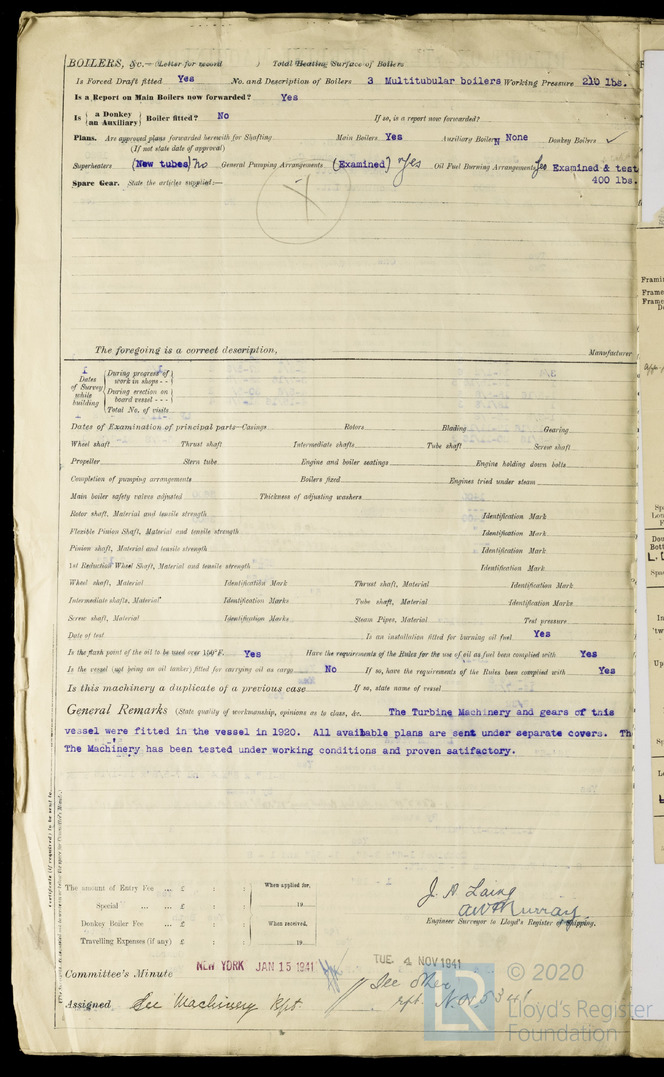 BOILERS, &c.—(Letter for record ) Total Heating Surface of Boilers
Is Forced Draft fitted Yes No. and Description of Boilers 3 Multitubular boilers Working Pressure 210 lbs.
Is a Report on Main Boilers now forwarded? Yes
Is { a Donkey / an Auxiliary } Boiler fitted? No If so, is a report now forwarded?
Plans. Are approved plans forwarded herewith for Shafting Main Boilers Yes Auxiliary Boilers None Donkey Boilers ✓
(If not state date of approval)
Superheaters (New tubes) no General Pumping Arrangements (Examined) yes Oil Fuel Burning Arrangements Yes Examined & test
400 lbs.
Spare Gear. State the articles supplied:—
The foregoing is a correct description,
Manufacturer
Dates of Survey while building
During progress of work in shops - -
During erection on board vessel - - -
Total No. of visits
Dates of Examination of principal parts—Casings Rotors Blading Gearing
Wheel shaft Thrust shaft Intermediate shafts Tube shaft Screw shaft
Propeller Stern tube Engine and boiler seatings Engine holding down bolts
Completion of pumping arrangements Boilers fixed Engines tried under steam
Main boiler safety valves adjusted Thickness of adjusting washers
Rotor shaft, Material and tensile strength Identification Mark
Flexible Pinion Shaft, Material and tensile strength Identification Mark
Pinion shaft, Material and tensile strength Identification Mark
1st Reduction Wheel Shaft, Material and tensile strength Identification Mark
Wheel shaft, Material Identification Mark Thrust shaft, Material Identification Mark
Intermediate shafts, Material Identification Marks Tube shaft, Material Identification Marks
Screw shaft, Material Identification Marks Steam Pipes, Material Test pressure
Date of test Is an installation fitted for burning oil fuel Yes
Is the flash point of the oil to be used over 150°F. Yes Have the requirements of the Rules for the use of oil as fuel been complied with Yes
Is the vessel (not being an oil tanker) fitted for carrying oil as cargo No If so, have the requirements of the Rules been complied with Yes
Is this machinery a duplicate of a previous case If so, state name of vessel
General Remarks (State quality of workmanship, opinions as to class, &c. The Turbine Machinery and gears of this
vessel were fitted in the vessel in 1920. All available plans are sent under separate covers. Th
The Machinery has been tested under working conditions and proven satifactory.
The amount of Entry Fee ... £ : : When applied for,
Special ... ... £ : : 19
Donkey Boiler Fee ... £ : : When received,
Travelling Expenses (if any) £ : : 19
J. A. Laing
A W Murray
Engineer Surveyor to Lloyd's Register of Shipping.
Committee's Minute NEW YORK JAN 15 1941 TUE. 4 NOV 1941
Assigned See Machinery Rpt.
See Other
rpt. N.
© 2020
Lloyd's Register
Foundation